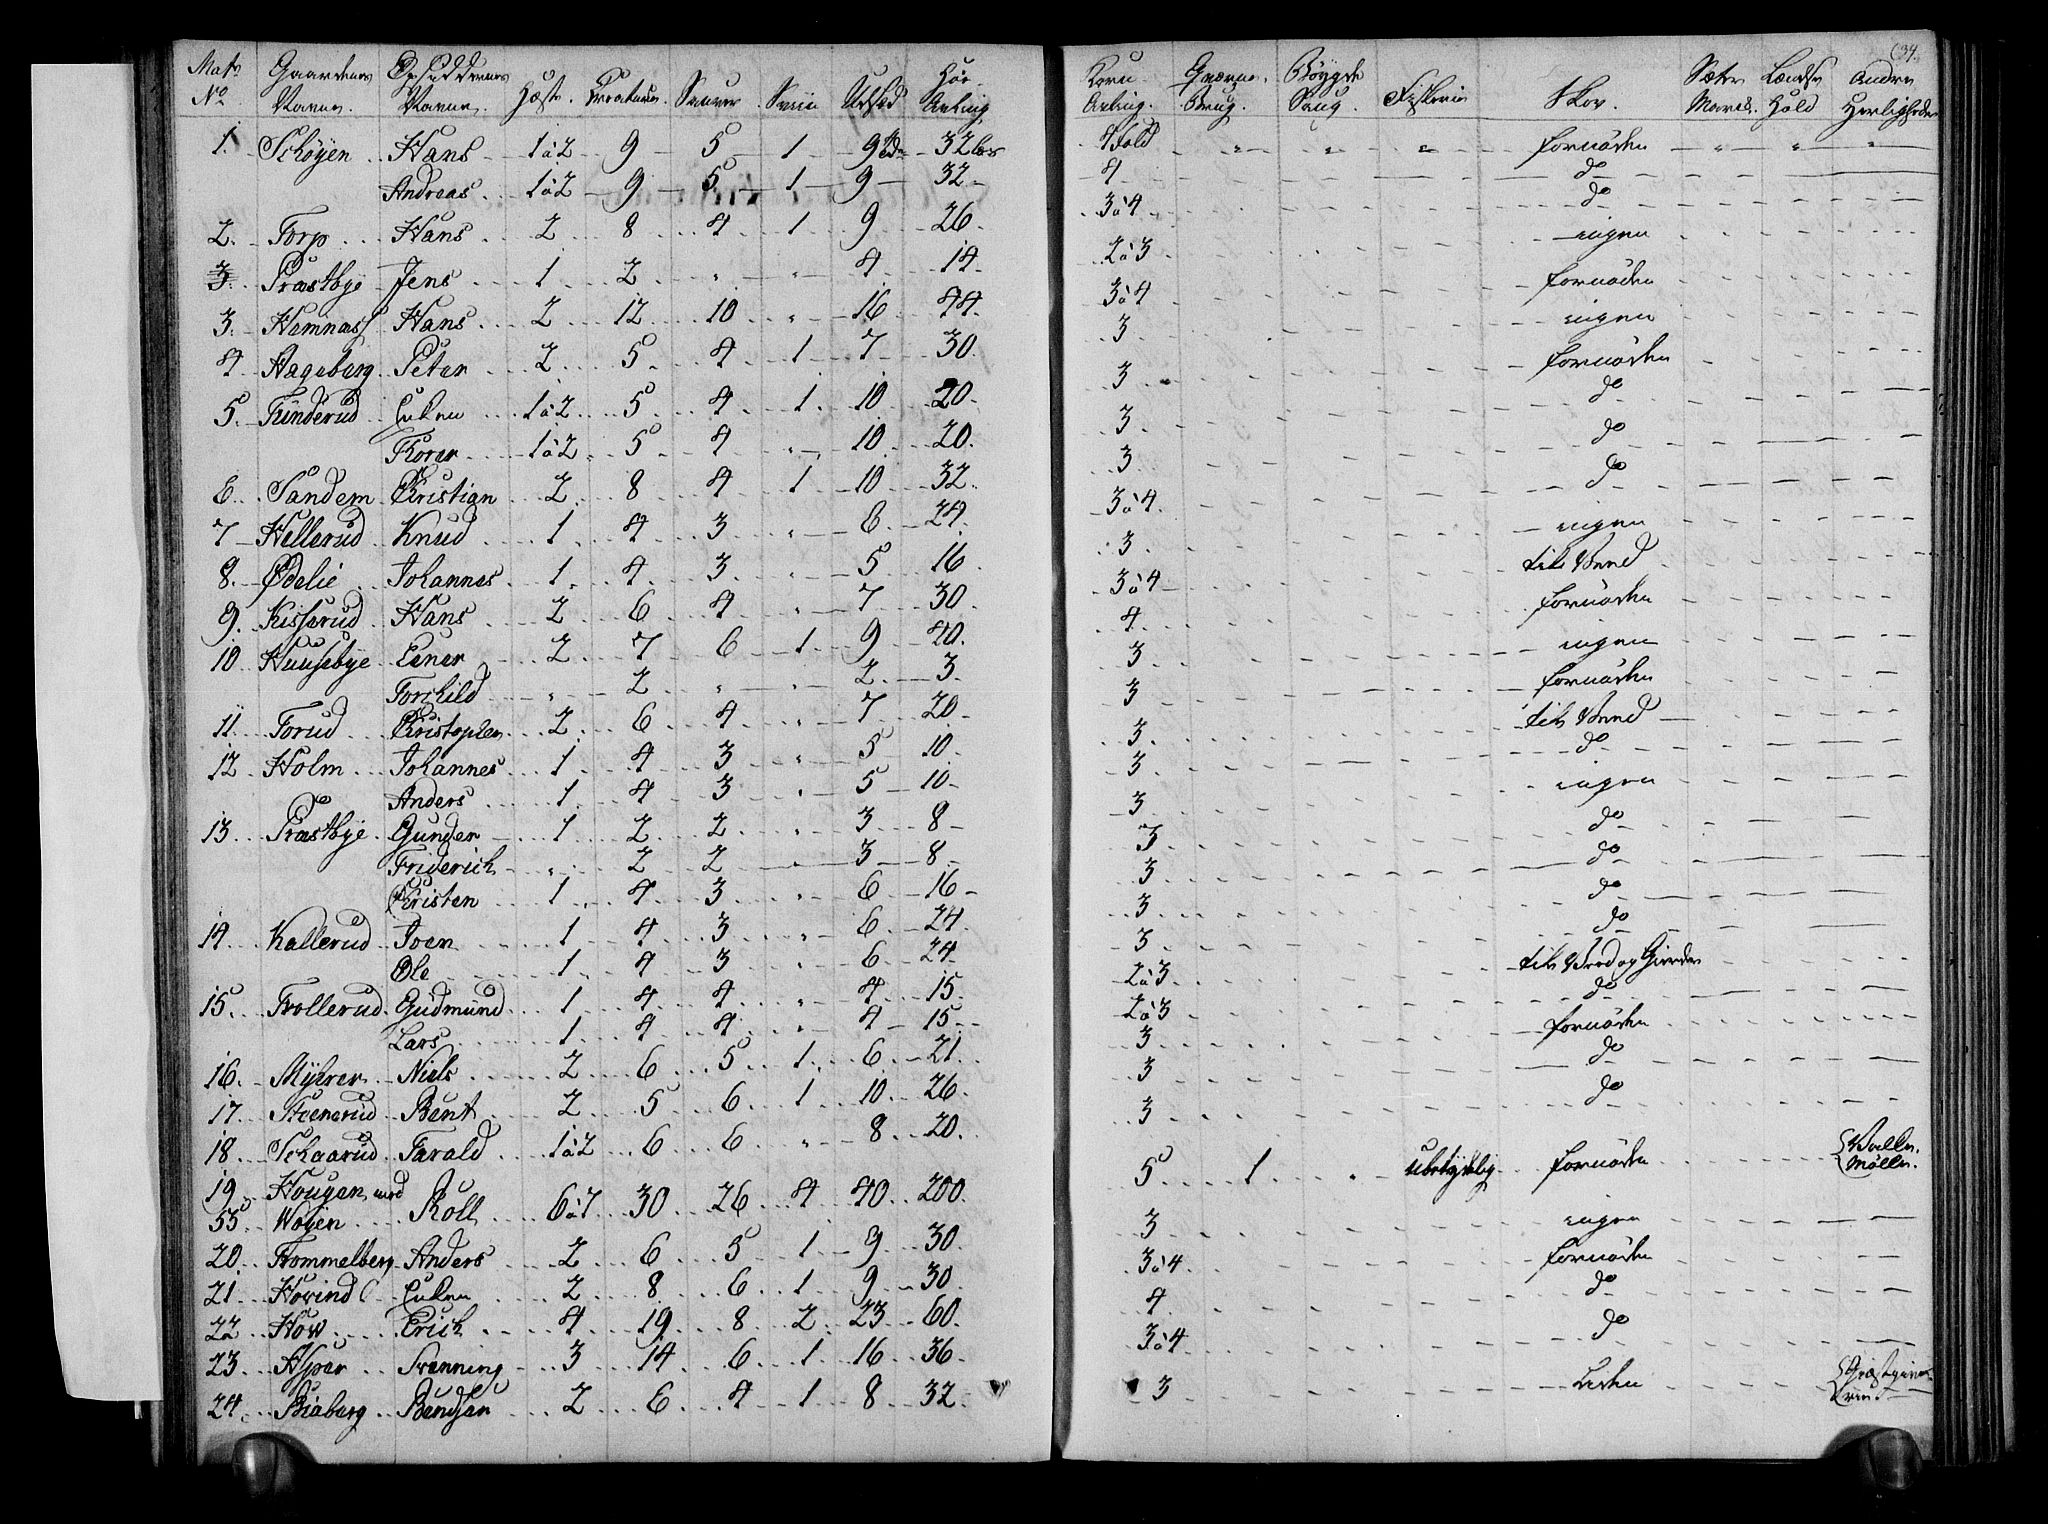 34.
Matr No Gaardenes Navne. Opsiddernes Navne. Hæste. Creature. Sauver Sviin Udsæd Høe Avling Korn Avling. Qværne Brug. Bøygde Saug. Fiskerie Skov. Sæter Havn Hold Andre Herligheder
1. Schøyen Hans 1à2 9 5 1 9 tdr 32 læs 4 fold " " " fornøden " " "
Andreas 1à2 9 5 1 9 32 4 do
2. Torp Hans 2 8 4 1 9 26 3à4 do
3. Præstbye Jens 1 2 " " 4 14 2à3 ingen
3. Hemnæss Hans 2 12 10 " 16 44 3à4 fornøden
4 Hageberg Peter 2 5 4 1 7 30 3 ingen
5. Tünderud 1à2 5 4 1 10 20 3 fornøden
Thorer 1à2 5 4 " 10 20 3 do
6 Sandem Christian 2 8 4 1 10 32 3 do
7 Hellerud Knud 1 4 3 " 6 24 3à4 do
8. Ødelie Johannes 1 4 3 " 5 16 3 ingen
9. Kisserud Hans 2 6 4 " 7 30 3à4 til Brend
10 Huusebye Einer 2 7 6 1 9 40 4 fornøden
Torchild " 2 " " 2 3 3 ingen
11. Torud Christopher 2 6 4 " 7 20 3 fornøden
12 Holm Johannes 1 4 3 " 5 10 3 til Brend
Anders 1 4 3 " 5 10 3 do
13 Præstbye Gunder 1 2 2 " 3 8 3 ingen
Friderich " 2 2 " 3 8 3 do
Christen 1 4 3 " 6 16 3 do
14 Kallerud Joen 1 4 3 " 6 24 3 do
Ole 1 4 3 " 6 24 3 do
15. Trollerud Gudmund 1 4 4 " 4 15 2à3 til Brend og Gierder
Lars 1 4 4 " 4 15 2à3 do
16. Myhrer Niels 2 6 5 1 6 21 3 fornøden
17. Steenerud Bent 2 5 6 1 10 26 3 do
18. Schaarud Tarald 1à2 6 6 " 8 20 3 do
19. Hougen med
55. Woyen Roll 6à7 30 26 4 40 200 5 1 " ubetydelig fornøden Mølle.
20. Trommelberg Anders 2 6 5 1 9 30 3 ingen
21. Høvind 2 8 6 1 9 30 3à4 fornøden
22 How Erich 4 19 8 2 23 60 4 do
23. Asper Svenning 3 14 6 1 16 36 3à4 do
24. Biaberg Bendser 2 6 4 1 8 32 3